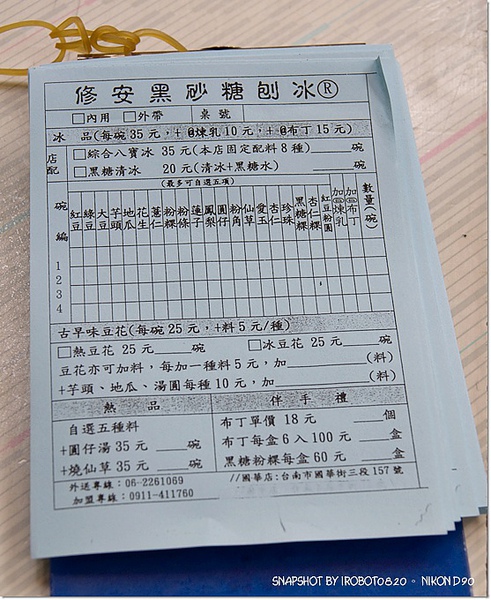 修安黑砂糖刨冰®
□內用 □外帶 桌號
冰 品(每碗35元,+@煉乳10元,+@布丁15元)
店配 □綜合八寶冰 35元(本店固定配料8種) ____碗
□黑糖清冰 20元(清冰+黑糖水) ____碗
(最多可自選五項)
碗編 紅豆 綠豆 大豆 芋頭 地瓜 花生 薏仁 粉粿 粉條 蓮子 鳳梨 圓仔 粉角 仙草 愛玉 杏仁 珍珠 黑糖粿 杏仁粿 紅豆粉圓 加@煉乳 加@布丁 數量(碗)
1
2
3
4
古早味豆花(每碗25元,+料5元/種)
□熱豆花 25元____碗 □冰豆花 25元____碗
豆花亦可加料,每加一種料5元,加________(料)
+芋頭、地瓜、湯圓每種10元,加________(料)
熱品 伴手禮
自選五種料 布丁單價18元 ____個
+圓仔湯35元 ____碗 布丁每盒6入100元 ____盒
+燒仙草35元 ____碗 黑糖粉粿每盒60元 ____盒
外送專線:06-2261069 //國華店:台南市國華街三段157號
加盟專線:0911-411760
SNAPSHOT BY IROBOT0820。 NIKON D90